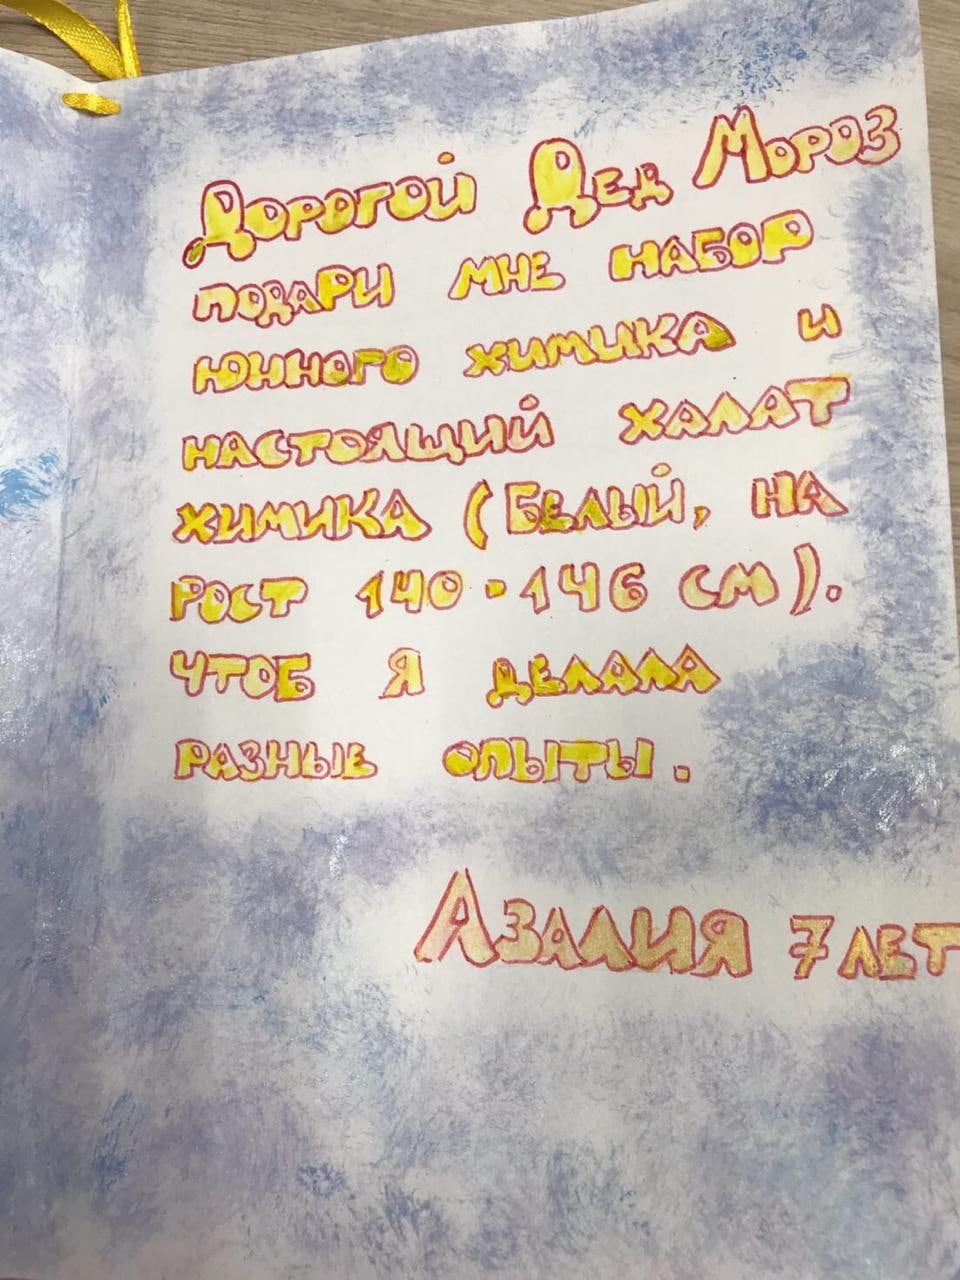 Дорогой Дед Мороз
подари мне набор
юнного химика и
настоящий халат
химика (белый, на
рост 140-146 см).
чтоб я делала
разные опыты.
Азалия 7 лет